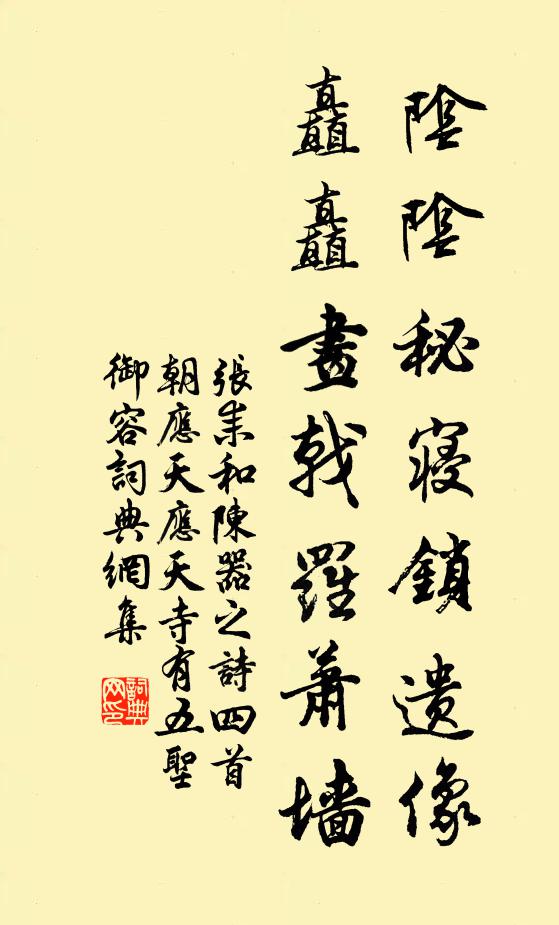 陰陰秘寢鎖遺像
矗矗畫戟羅蕭墻
張耒和陳器之詩四首
朝應天應天寺有五聖
御容詞典網集
詞典
网印